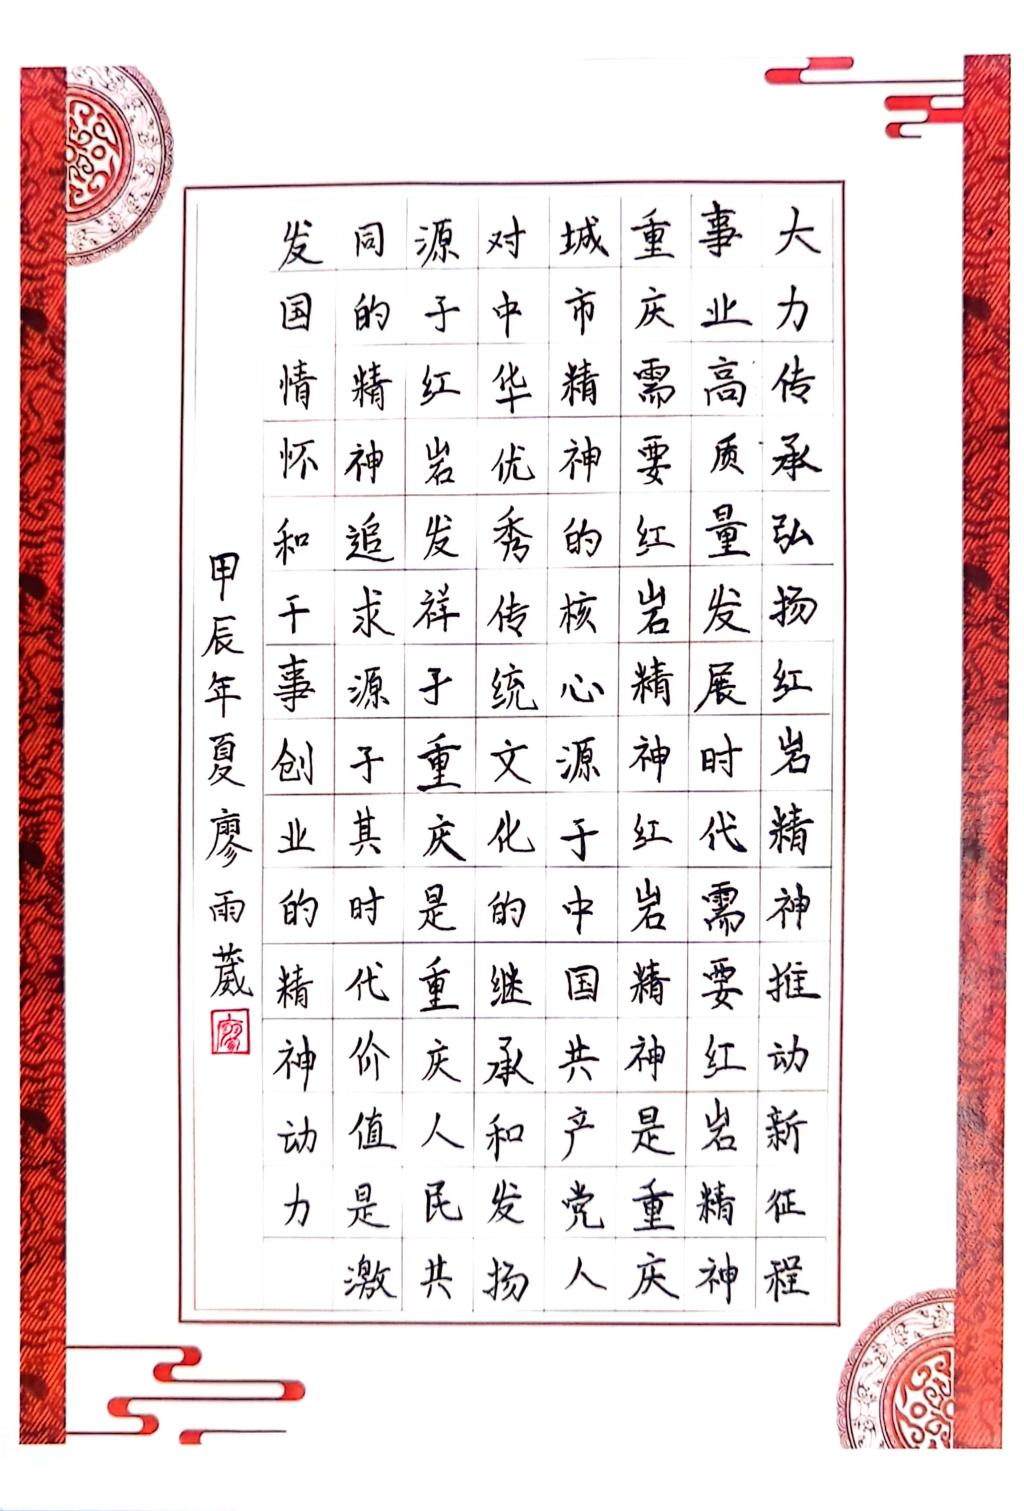 大力传承弘扬红岩精神推动新征程
事业高质量发展时代需要红岩精神
重庆需要红岩精神红岩精神是重庆
城市精神的核心源于中国共产党人
对中华优秀传统文化的继承和发扬
源于红岩发祥于重庆是重庆人民共
同的精神追求源于其时代价值是激
发国情怀和干事创业的精神动力
甲辰年夏廖雨葳
廖